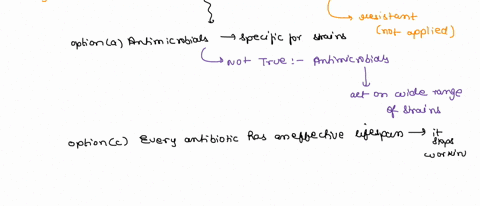 resistant
(not applied)
option(a) Antimicrobials → specific for strains
Not True :- Antimicrobials
act on wide range
of strains
option(c) Every antibiotic has an effective lifespan → it
stops
workin